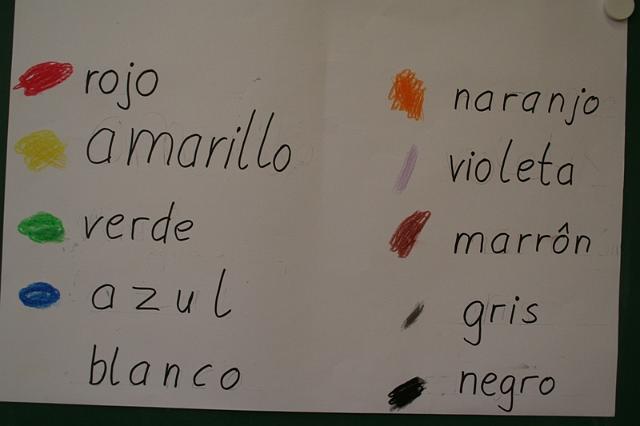 rojo
amarillo
verde
azul
blanco
naranjo
violeta
marrôn
gris
negro